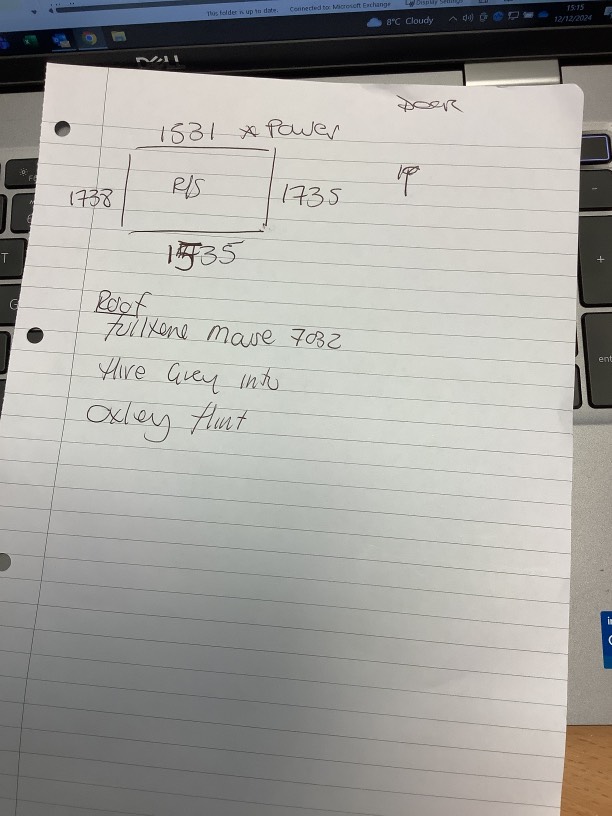 This folder is up to date. Connected to: Microsoft Exchange Display Settings
8°C Cloudy
15:15
12/12/2024
DELL
DOOR
1531 * Power
1738 R/S 1735
1535
Roof
7032
Grey into
Oxley flint
T
G
+
-
ent